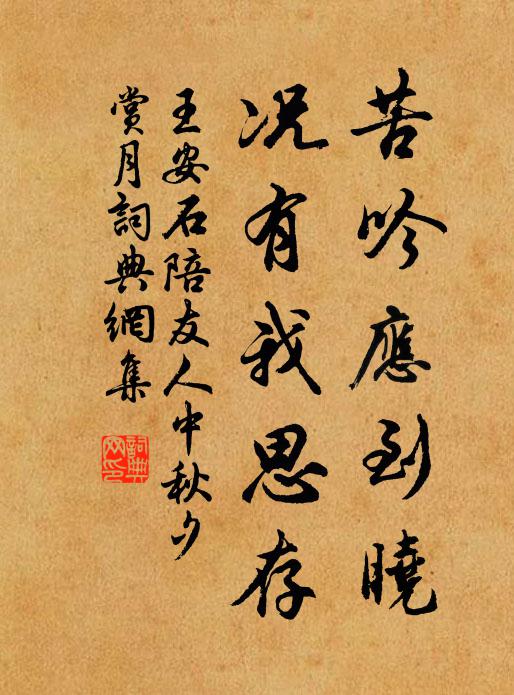 苦吟應到曉
况有我思存
王安石陪友人中秋夕
賞月詞典網集
詞典網印